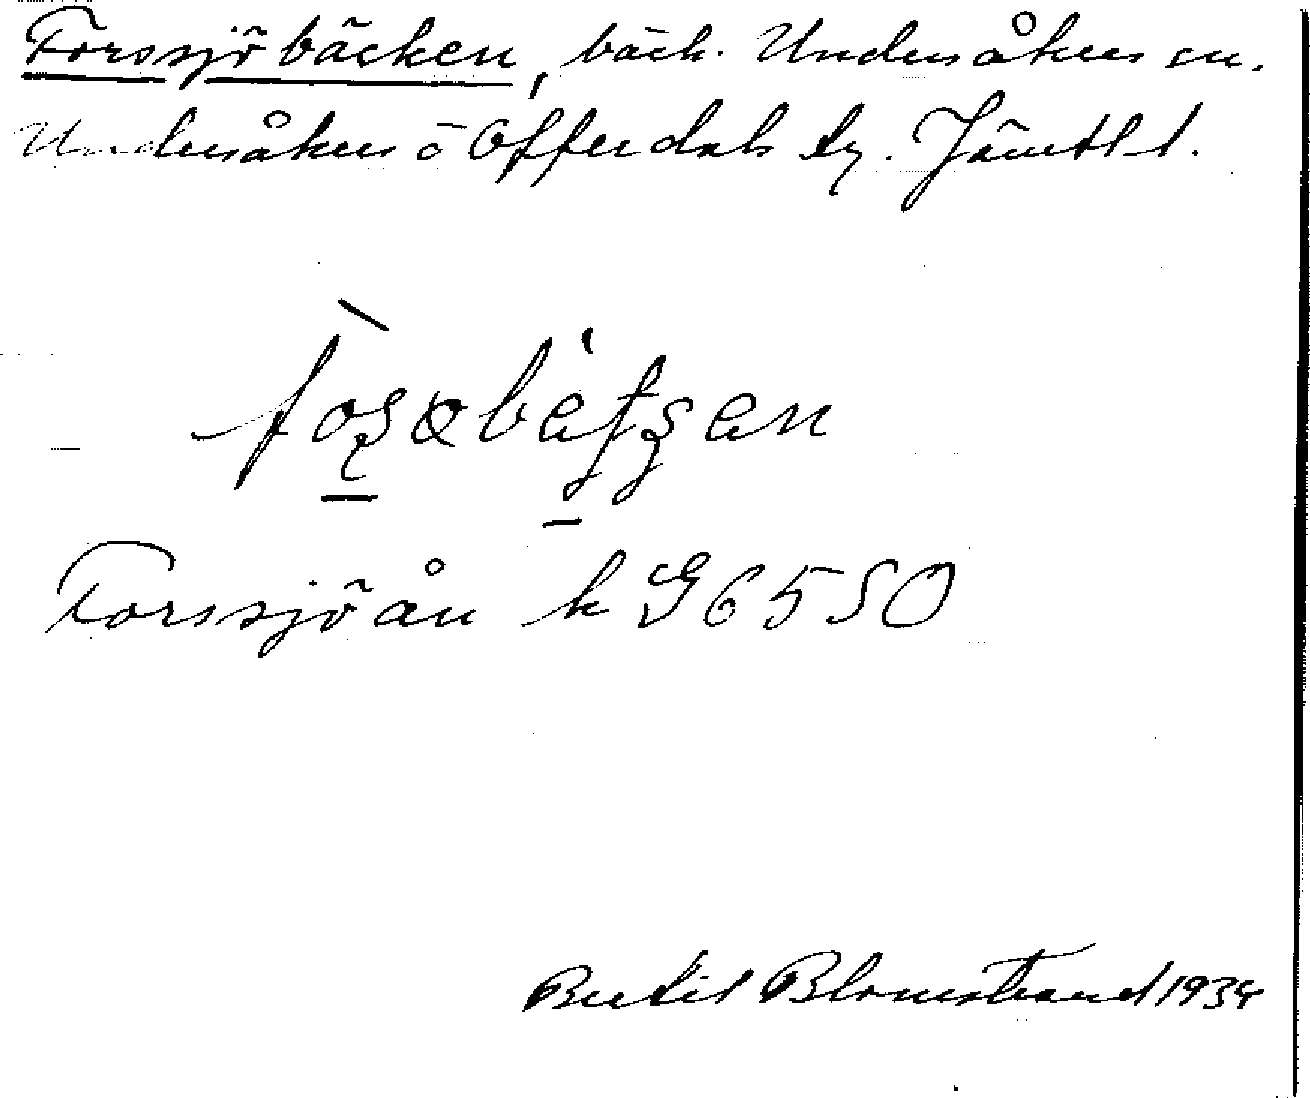 Forssjöbäcken, bäck. Undersåkers sn.
Undersåkers o Offerdals tg. Jämtl. l.
Forssjöån k G6550
Bertil Blomstrand 1934